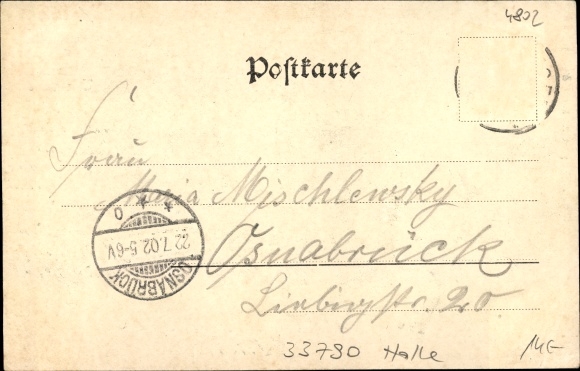 4802
Postkarte
Frau
Maria Mischlewsky
Osnabrück
Liebigstr. 20
OSNABRÜCK
22.7.02.5-6V
33790 Halle
14E